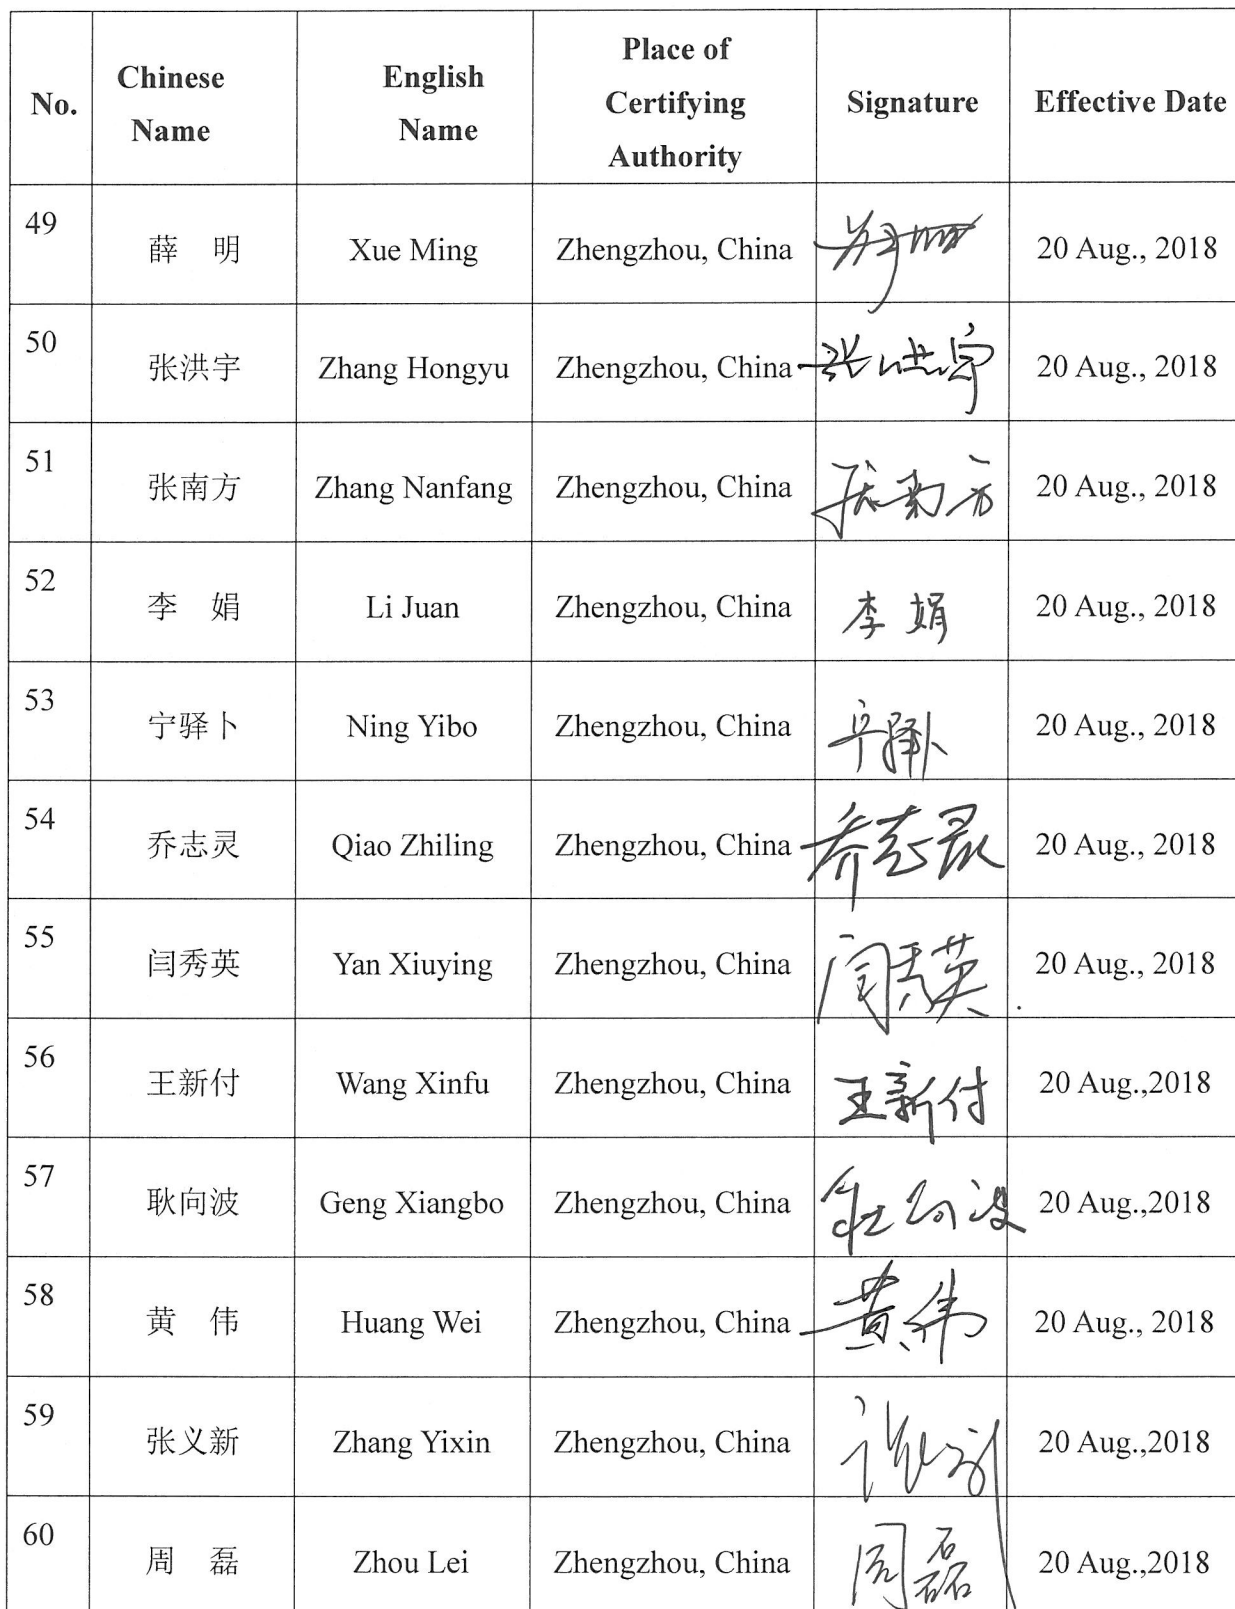 No. Chinese Name English Name Place of Certifying Authority Signature Effective Date
49 薛 明 Xue Ming Zhengzhou, China 20 Aug., 2018
50 张洪宇 Zhang Hongyu Zhengzhou, China 张洪宇 20 Aug., 2018
51 张南方 Zhang Nanfang Zhengzhou, China 张南方 20 Aug., 2018
52 李 娟 Li Juan Zhengzhou, China 李娟 20 Aug., 2018
53 宁驿卜 Ning Yibo Zhengzhou, China 宁驿卜 20 Aug., 2018
54 乔志灵 Qiao Zhiling Zhengzhou, China 乔志灵 20 Aug., 2018
55 闫秀英 Yan Xiuying Zhengzhou, China 闫秀英 20 Aug., 2018
56 王新付 Wang Xinfu Zhengzhou, China 王新付 20 Aug.,2018
57 耿向波 Geng Xiangbo Zhengzhou, China 耿向波 20 Aug.,2018
58 黄 伟 Huang Wei Zhengzhou, China 黄伟 20 Aug., 2018
59 张义新 Zhang Yixin Zhengzhou, China 20 Aug.,2018
60 周 磊 Zhou Lei Zhengzhou, China 周磊 20 Aug.,2018